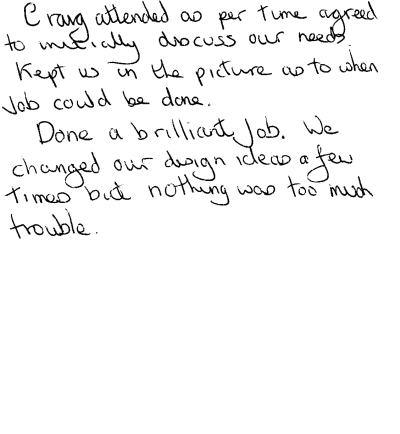 Craig attended as per time agreed
to initially discuss our needs.
Kept us in the picture as to when
Job could be done.
Done a brilliant Job. We
changed our design ideas a few
times but nothing was too much
trouble.